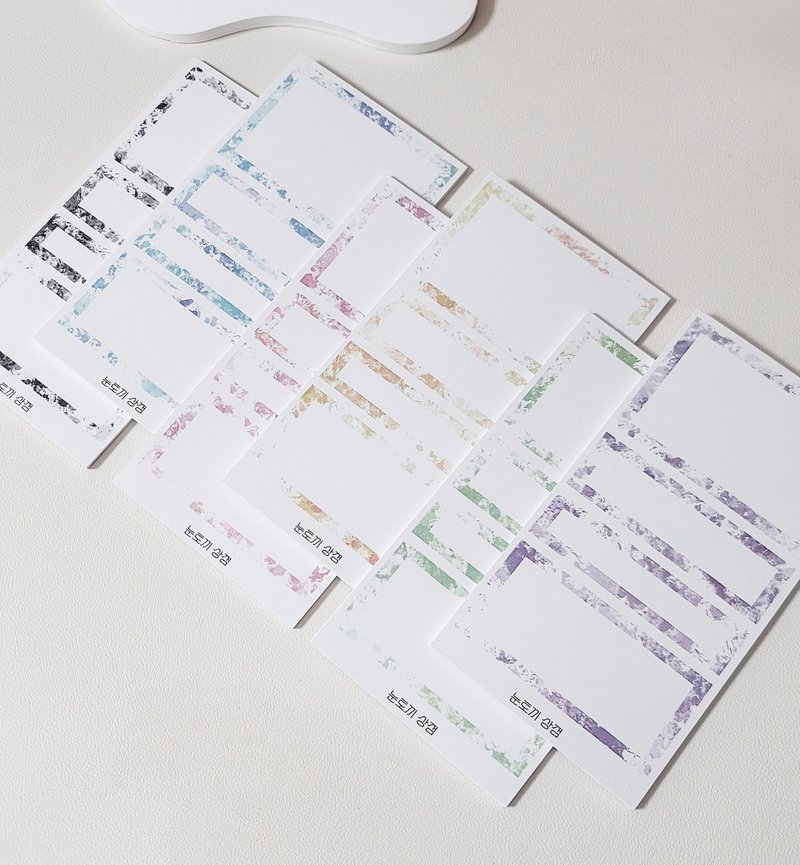 눈토끼 상점
눈토끼 상점
눈토끼 상점
눈토끼 상점
눈토끼 상점
눈토끼 상점